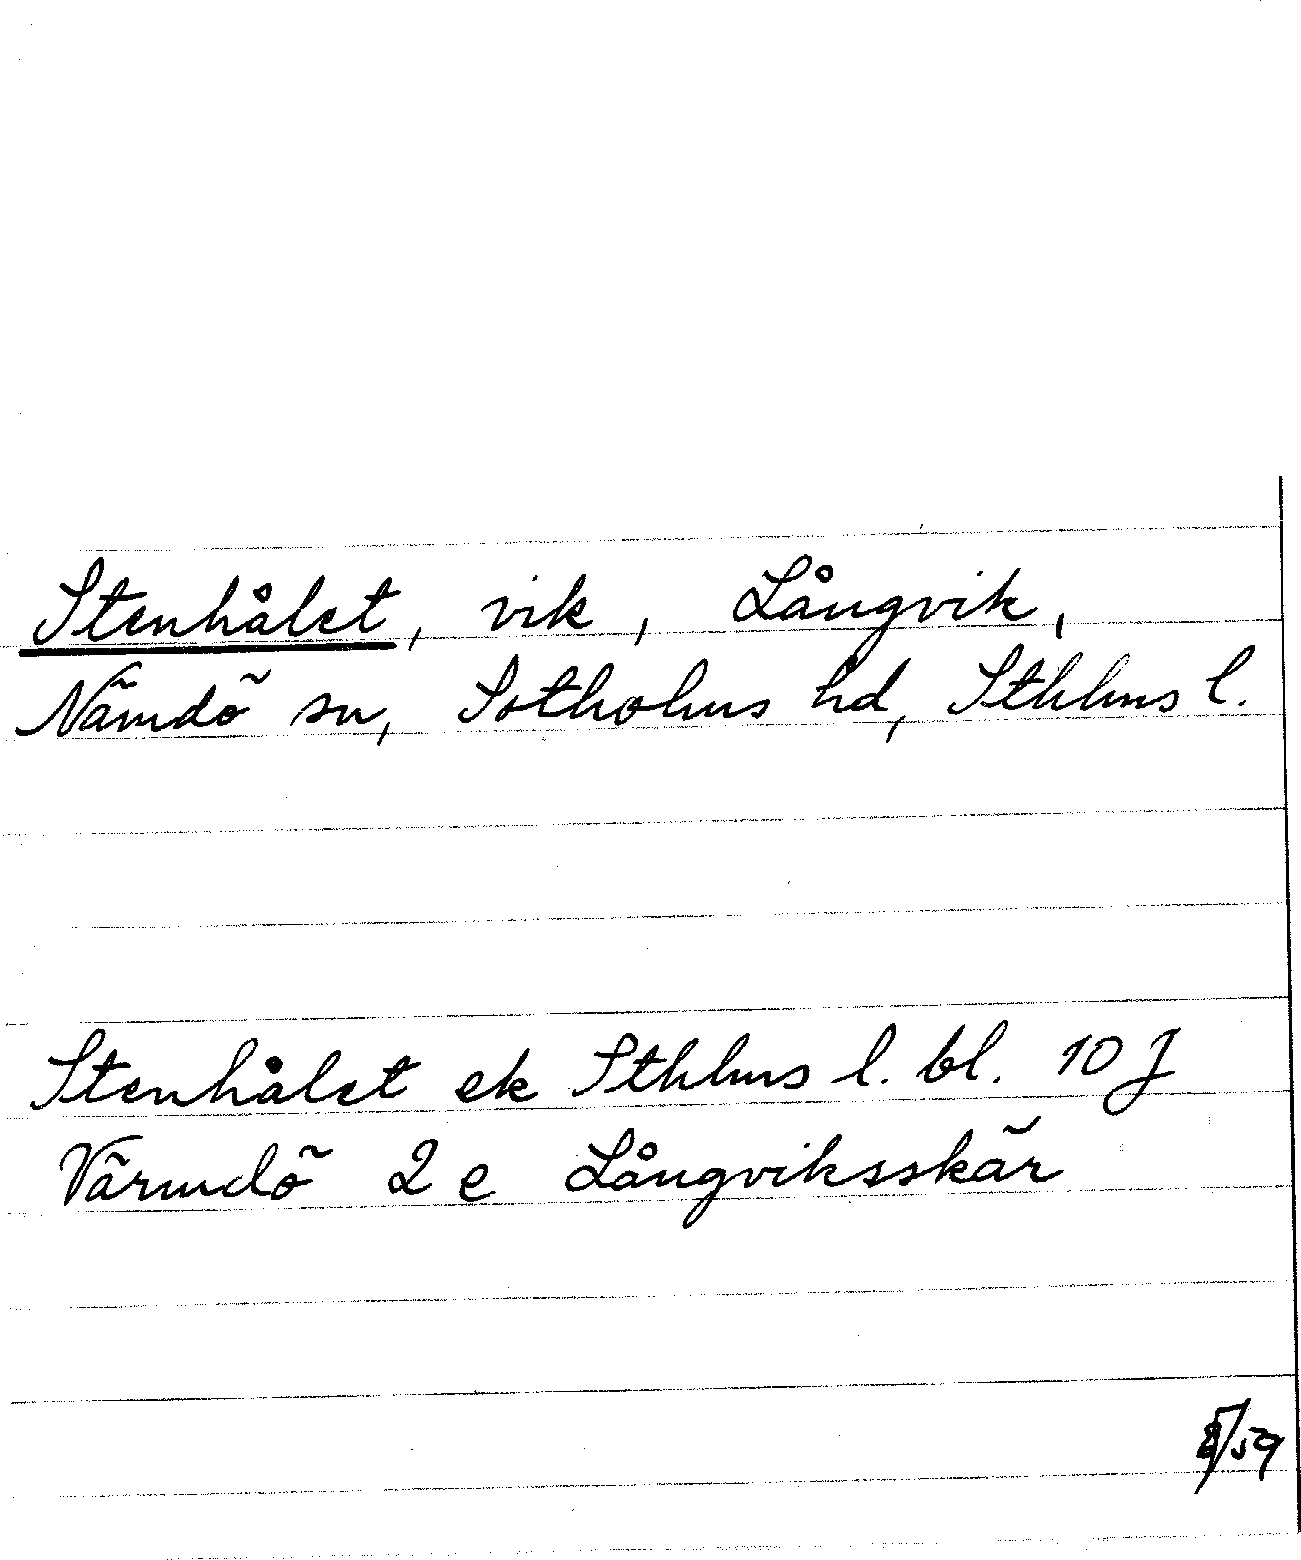 Stenhålet, vik, Långvik,
Nämdö sn, Sotholms hd, Sthlms l.
Stenhålet ek Sthlms l. bl. 10 J
Värmdö 2 e Långviksskär
/59